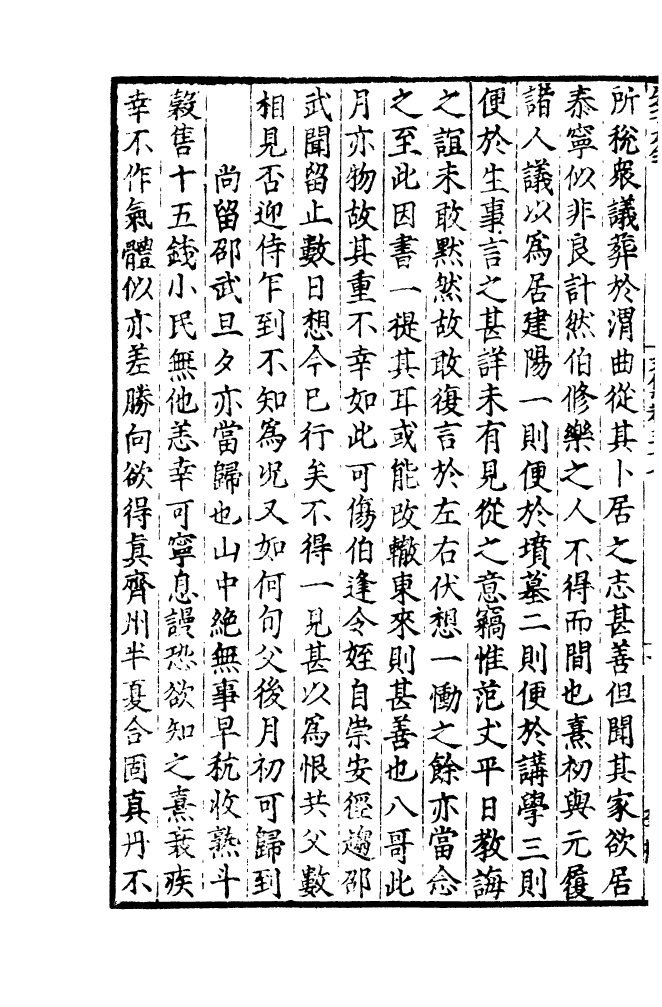 所稅衆議葬於渭曲從其卜居之志甚善但聞其家欲居
泰寧似非良計然伯修樂之人不得而間也熹初與元履
諸人議以爲居建陽一則便於墳墓二則便於講學三則
便於生事言之甚詳未有見從之意竊惟范丈平日教誨
之誼未敢默然故敢復言於左右伏想一慟之餘亦當念
之至此因書一提其耳或能改轍東來則甚善也八哥此
月亦物故其重不幸如此可傷伯逢令姪自崇安徑趨邵
武聞留止數日想今已行矣不得一見甚以爲恨共父數
相見否迎侍乍到不知爲況又如何旬父後月初可歸到
尚留邵武旦夕亦當歸也山中絶無事早秔收熟斗
榖售十五錢小民無他恙幸可寧息謾恐欲知之熹衰疾
幸不作氣體似亦差勝向欲得眞齊州半夏合固真丹不